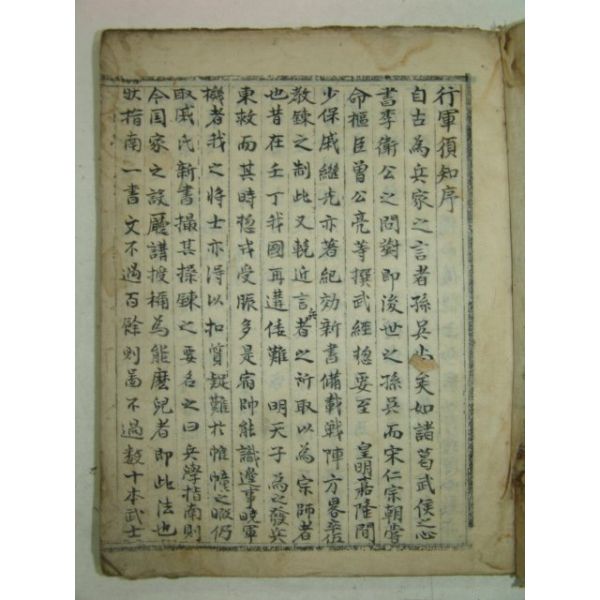 行軍須知序
自古為兵家之言者孫吳尚矣如諸葛武侯之心
書李衛公之問對即後世之孫吳而宋仁宗朝嘗
命樞臣曾公亮等撰武經總要至 皇明嘉隆間
少保戚繼光亦著紀効新書備載戰陣方畧卒伍
教鍊之制此又輓近言兵者之所取以為宗師者
也昔在壬丁我國再遘倭難 明天子為之發兵
東救而其時總戎受脤多是宿師能識邊事曉軍
機者我之將士亦得以扣質疑難於帷幄之暇仍
取戚氏新書撮其操鍊之要名之曰兵學指南則
今国家之設廳講授稱為能麽兒者即此法也
狀指南一書文不過百餘則畵不過数十本武士